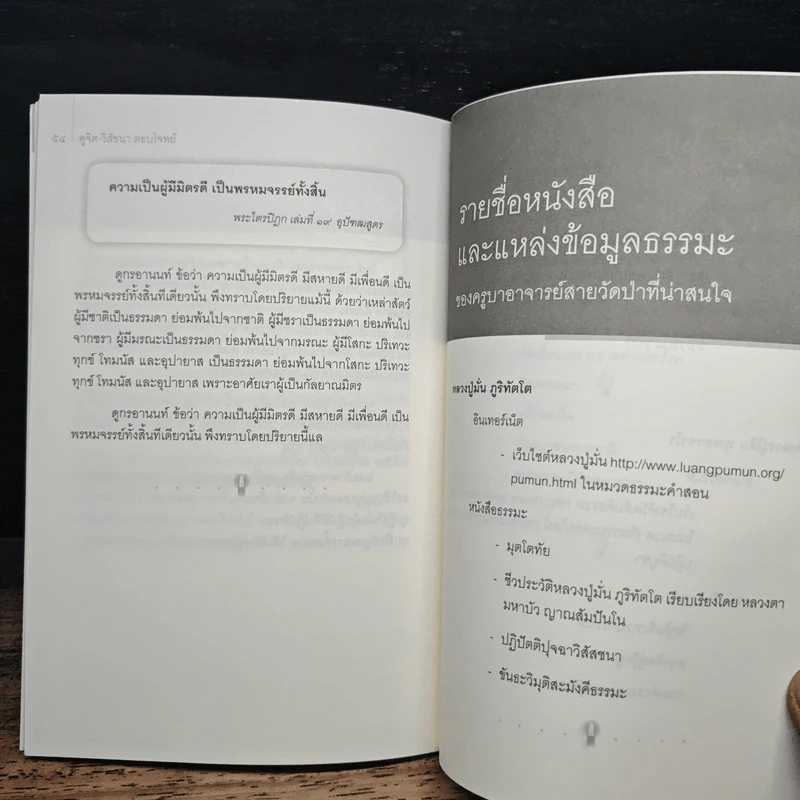 ๕๔ ดูจิต-วิสัชนา ตอบโจทย์
ความเป็นผู้มีมิตรดี เป็นพรหมจรรย์ทั้งสิ้น
พระไตรปิฎก เล่มที่ ๑๙ อุปัฑฒสูตร
ดูกรอานนท์ ข้อว่า ความเป็นผู้มีมิตรดี มีสหายดี มีเพื่อนดี เป็น
พรหมจรรย์ทั้งสิ้นทีเดียวนั้น พึงทราบโดยปริยายแม้นี้ ด้วยว่าเหล่าสัตว์
ผู้มีชาติเป็นธรรมดา ย่อมพ้นไปจากชาติ ผู้มีชราเป็นธรรมดา ย่อมพ้นไป
จากชรา ผู้มีมรณะเป็นธรรมดา ย่อมพ้นไปจากมรณะ ผู้มีโสกะ ปริเทวะ
ทุกข์ โทมนัส และอุปายาส เป็นธรรมดา ย่อมพ้นไปจากโสกะ ปริเทวะ
ทุกข์ โทมนัส และอุปายาส เพราะอาศัยเราผู้เป็นกัลยาณมิตร
ดูกรอานนท์ ข้อว่า ความเป็นผู้มีมิตรดี มีสหายดี มีเพื่อนดี เป็น
พรหมจรรย์ทั้งสิ้นทีเดียวนั้น พึงทราบโดยปริยายนี้แล
รายชื่อหนังสือ
และแหล่งข้อมูลธรรมะ
ของครูบาอาจารย์สายวัดป่าที่น่าสนใจ
หลวงปู่มั่น ภูริทัตโต
อินเทอร์เน็ต
- เว็บไซต์หลวงปู่มั่น http://www.luangpumun.org/
pumun.html ในหมวดธรรมะคำสอน
หนังสือธรรมะ
- มุตโตทัย
- ชีวประวัติหลวงปู่มั่น ภูริทัตโต เรียบเรียงโดย หลวงตา
มหาบัว ญาณสัมปันโน
- ปฏิปัตติปุจฉาวิสัสชนา
- ขันธะวิมุติสะมังคีธรรมะ